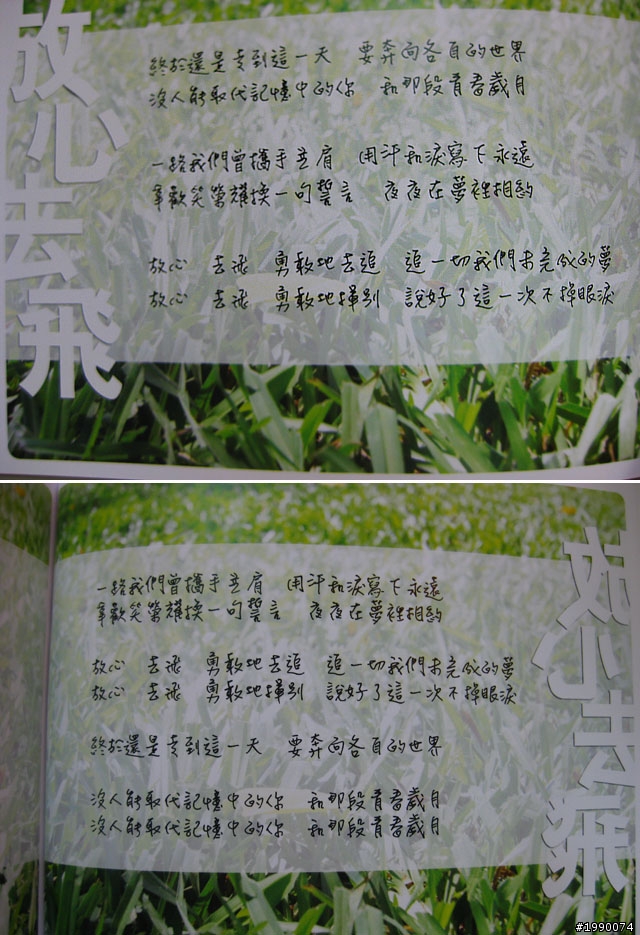 放心去飛
終於還是走到這一天 要奔向各自的世界
沒人能取代記憶中的你 和那段青春歲月
一路我們曾攜手並肩 用汗和淚寫下永遠
拿歡笑榮耀換一句誓言 夜夜在夢裡相約
放心 去飛 勇敢地去追 追一切我們未完成的夢
放心 去飛 勇敢地揮別 說好了這一次不掉眼淚
放心去飛
一路我們曾攜手並肩 用汗和淚寫下永遠
拿歡笑榮耀換一句誓言 夜夜在夢裡相約
放心 去飛 勇敢地去追 追一切我們未完成的夢
放心 去飛 勇敢地揮別 說好了這一次不掉眼淚
終於還是走到這一天 要奔向各自的世界
沒人能取代記憶中的你 和那段青春歲月
沒人能取代記憶中的你 和那段青春歲月
#1990074